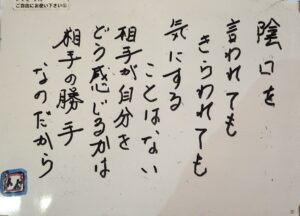 ご自由にお使い下さい
陰口を
言われても
きらわれても
気にする
ことはない
相手が自分を
どう感じるかは
相手の勝手
なのだから